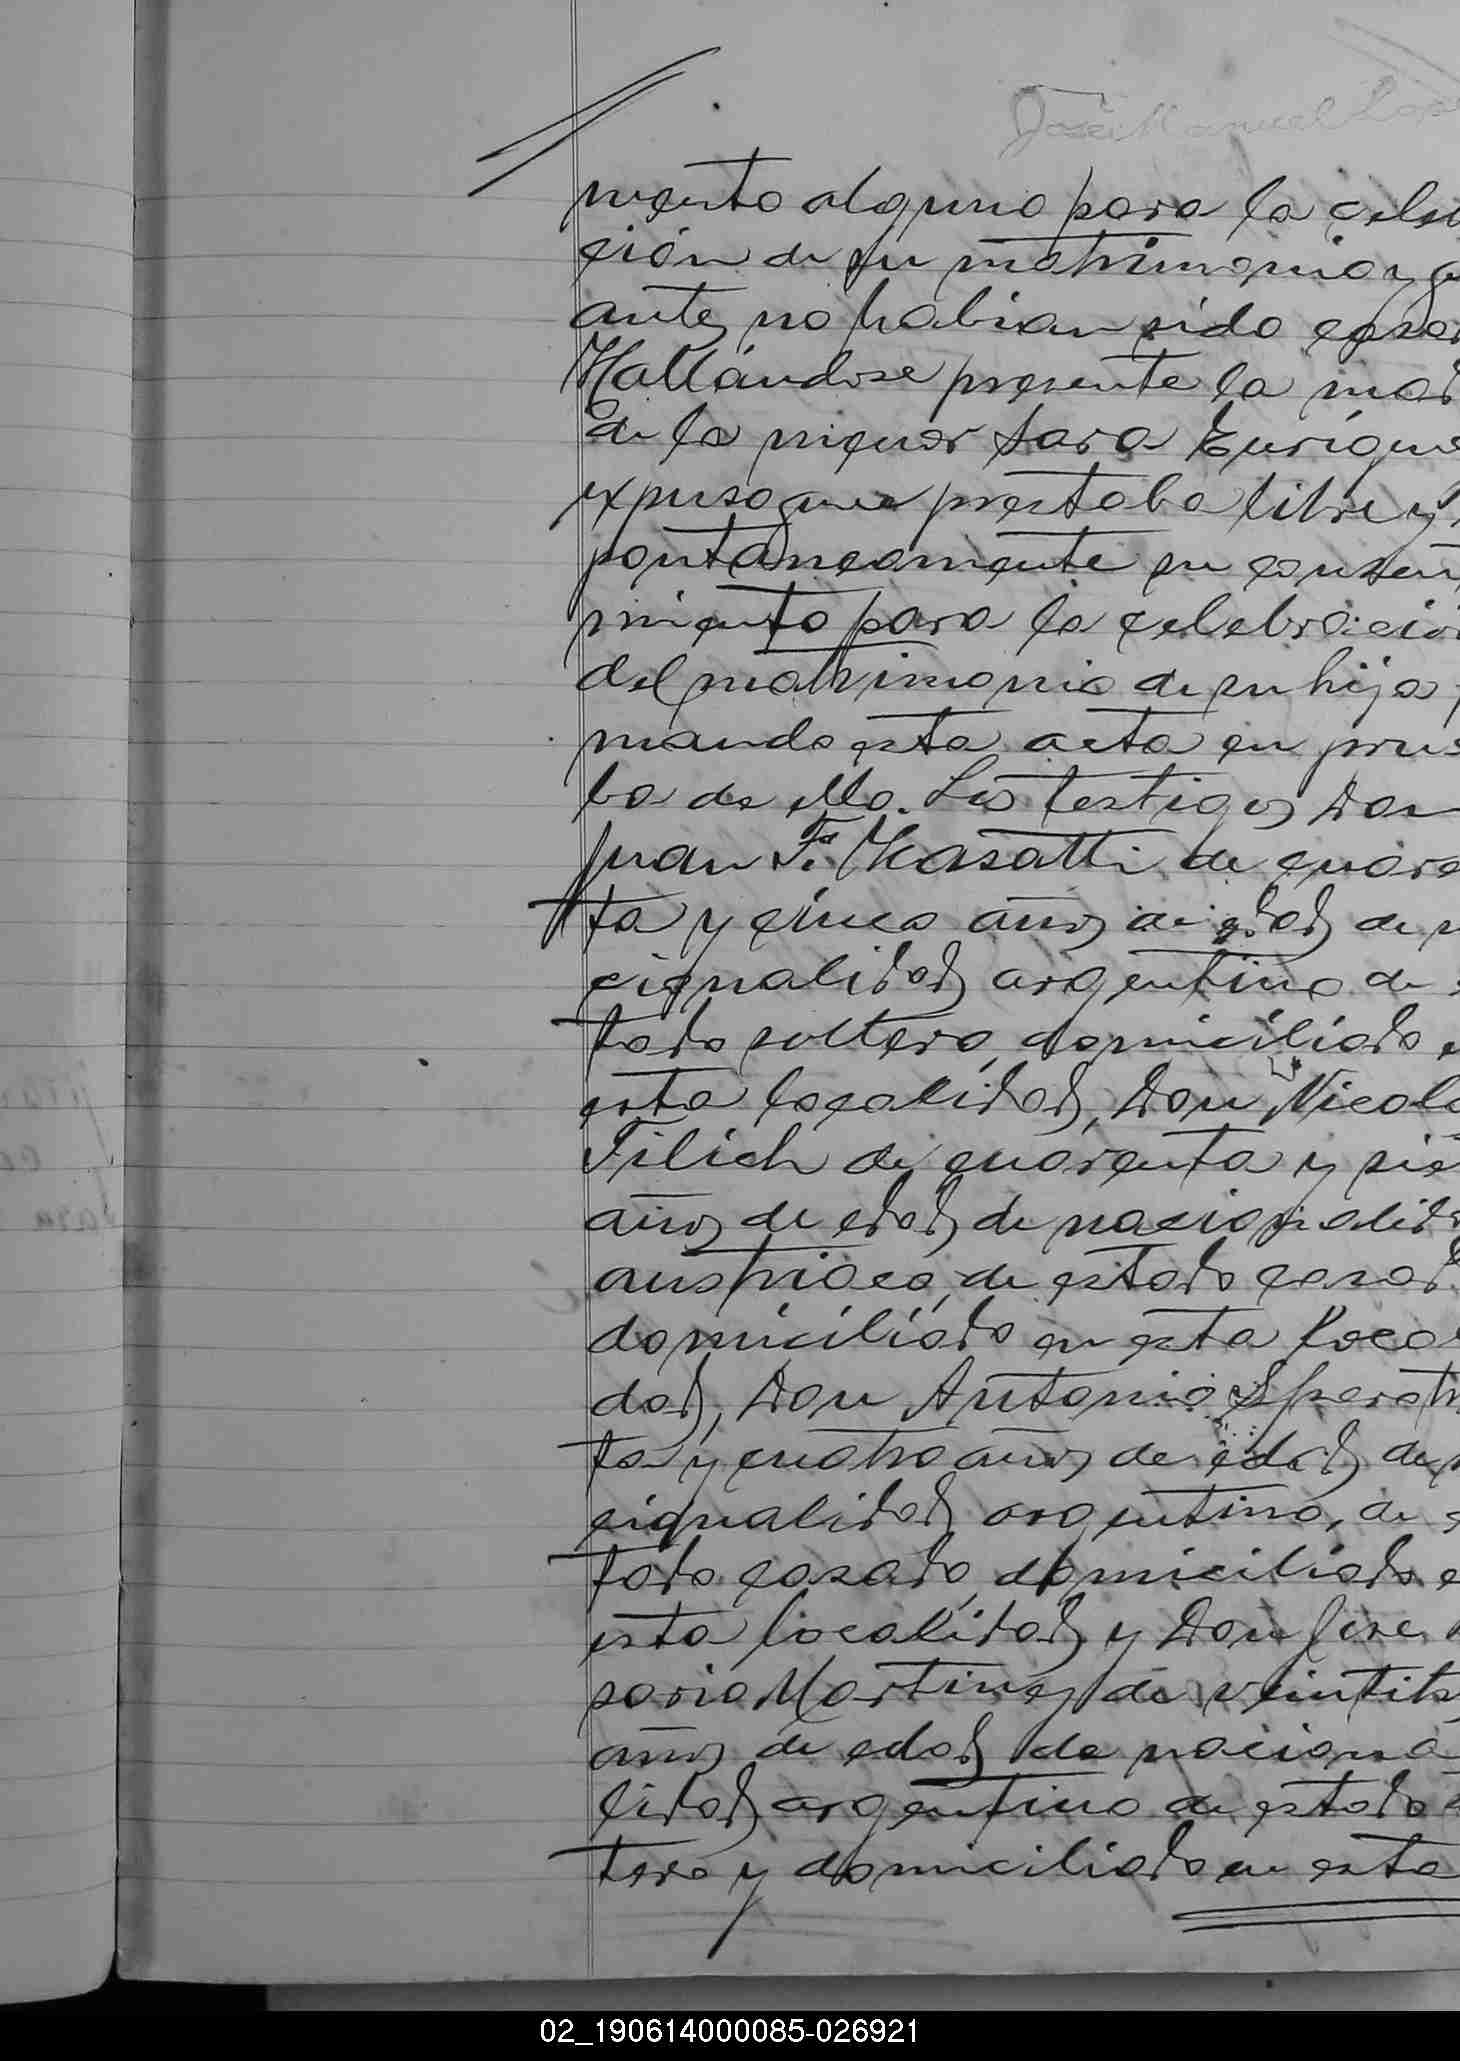 José Manuel Lope
miento alguno para la celeb
ción de su matrimonio y q
antes no habian sido casa
Hallándose presente la mad
de la menor Sara Enrique
expuso que prestaba libre y
pontaneamente su consen
miento para la celebracion
del matrimonio de su hija
mando esta acta en prue
ba de ello. Los testigos Don
Juan F. Masatti de cuare
ta y cinco años de edad, de n
cionalidad argentino de
tado soltero, domiciliado e
esta localidad, Don Nicola
Filich de cuarenta y sie
años de edad, de nacionalida
austriaco, de estado casad
domiciliado en esta loca
dad, Don Antonio
ta y cuatro años de edad, de n
cionalidad argentino, de e
tado casado, domiciliado e
esta localidad, y Don Jose
sario Martinez de veintitr
años de edad, de naciona
lidad argentino de estado
tero y domiciliado en esta
02_190614000085-026921